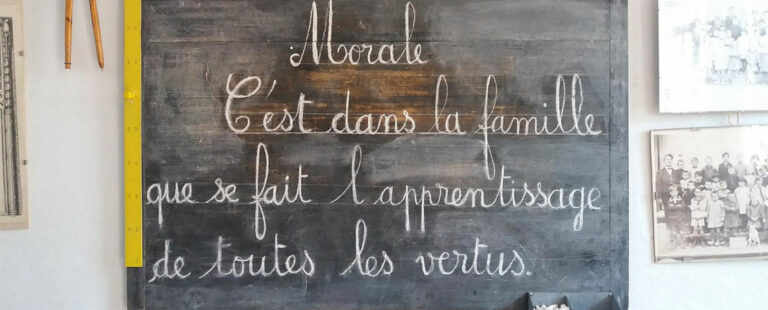 Morale
C'est dans la famille
que se fait l'apprentissage
de toutes les vertus.